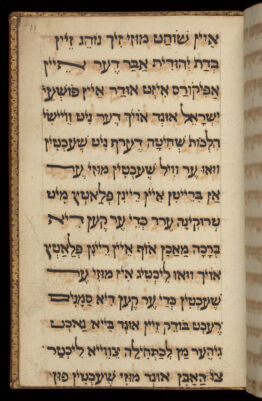 אײן שוחט מוזי זיך נוהג זײן
בדת יהודית אבר דער איין
אפיקורס איזט אודר אײן פושעי
ישראל אונד אויך דער ניט ווייש
הלכות שחיטה דערף ניט שעכטין
וואו ער וויל שעכטין מוזי ער
אן ברייטן אײן ריינן פלאטץ מיט
ער כדי ער קען דיא
ברכה מאכן אויף אײן ריינן פלאטץ
אויך וואו ליכטיג אין מוזי ער
שעכטין כדי ער קען דיא סמנים
רעכט בודק זיין אונד בייא נאכט
מן לכתחילה צווייא ליכטר
צו האבן אונד מוזי שעכטין פון